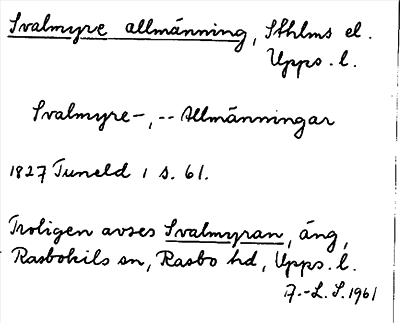 Svalmyre allmänning, Sthlms el.
Upps. l.
Svalmyre-, -- Allmänningar
1827 Tuneld 1 s. 61.
Troligen avses Svalmyran, äng,
Rasbokils sn, Rasbo hd, Upps. l.
A.-L. S. 1961